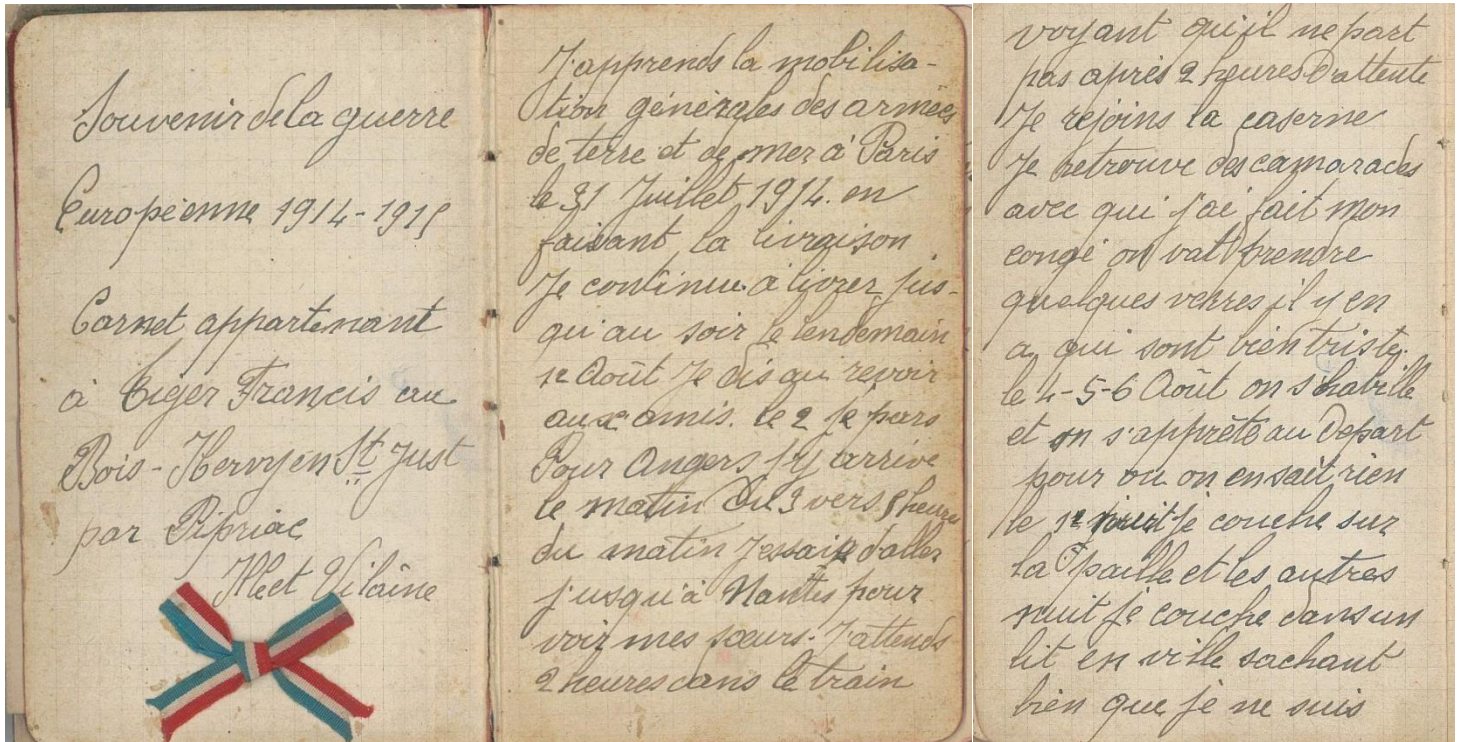 Souvenir de la guerre
Européenne 1914-1915
Carnet appartenant
à Tiger Francis au
Bois-Hervy en St Just
par Pipriac
Ille et Vilaine
J'apprends la mobilisa-
tion générales des armées
de terre et de mer à Paris
le 31 Juillet 1914. en
faisant la livraison
Je continue à livrer jus-
qu'au soir le lendemain
1er Août Je dis au revoir
aux amis. le 2 je pars
Pour Angers j'y arrive
le matin du 3 vers 8 heures
du matin J'essaie d'aller
jusqu'à Nantes pour
voir mes sœurs. J'attends
2 heures dans le train
voyant qu'il ne part
pas après 2 heures d'attente
Je rejoins la caserne
Je retrouve des camarades
avec qui j'ai fait mon
congé on vat prendre
quelques verres il y en
a qui sont bien triste.
le 4-5-6 Août on s'habille
et on s'apprête au Depart
pour ou on en sait rien
le 1er nuit je couche sur
la paille et les autres
nuit je couche dans un
lit en ville sachant
bien que je ne suis